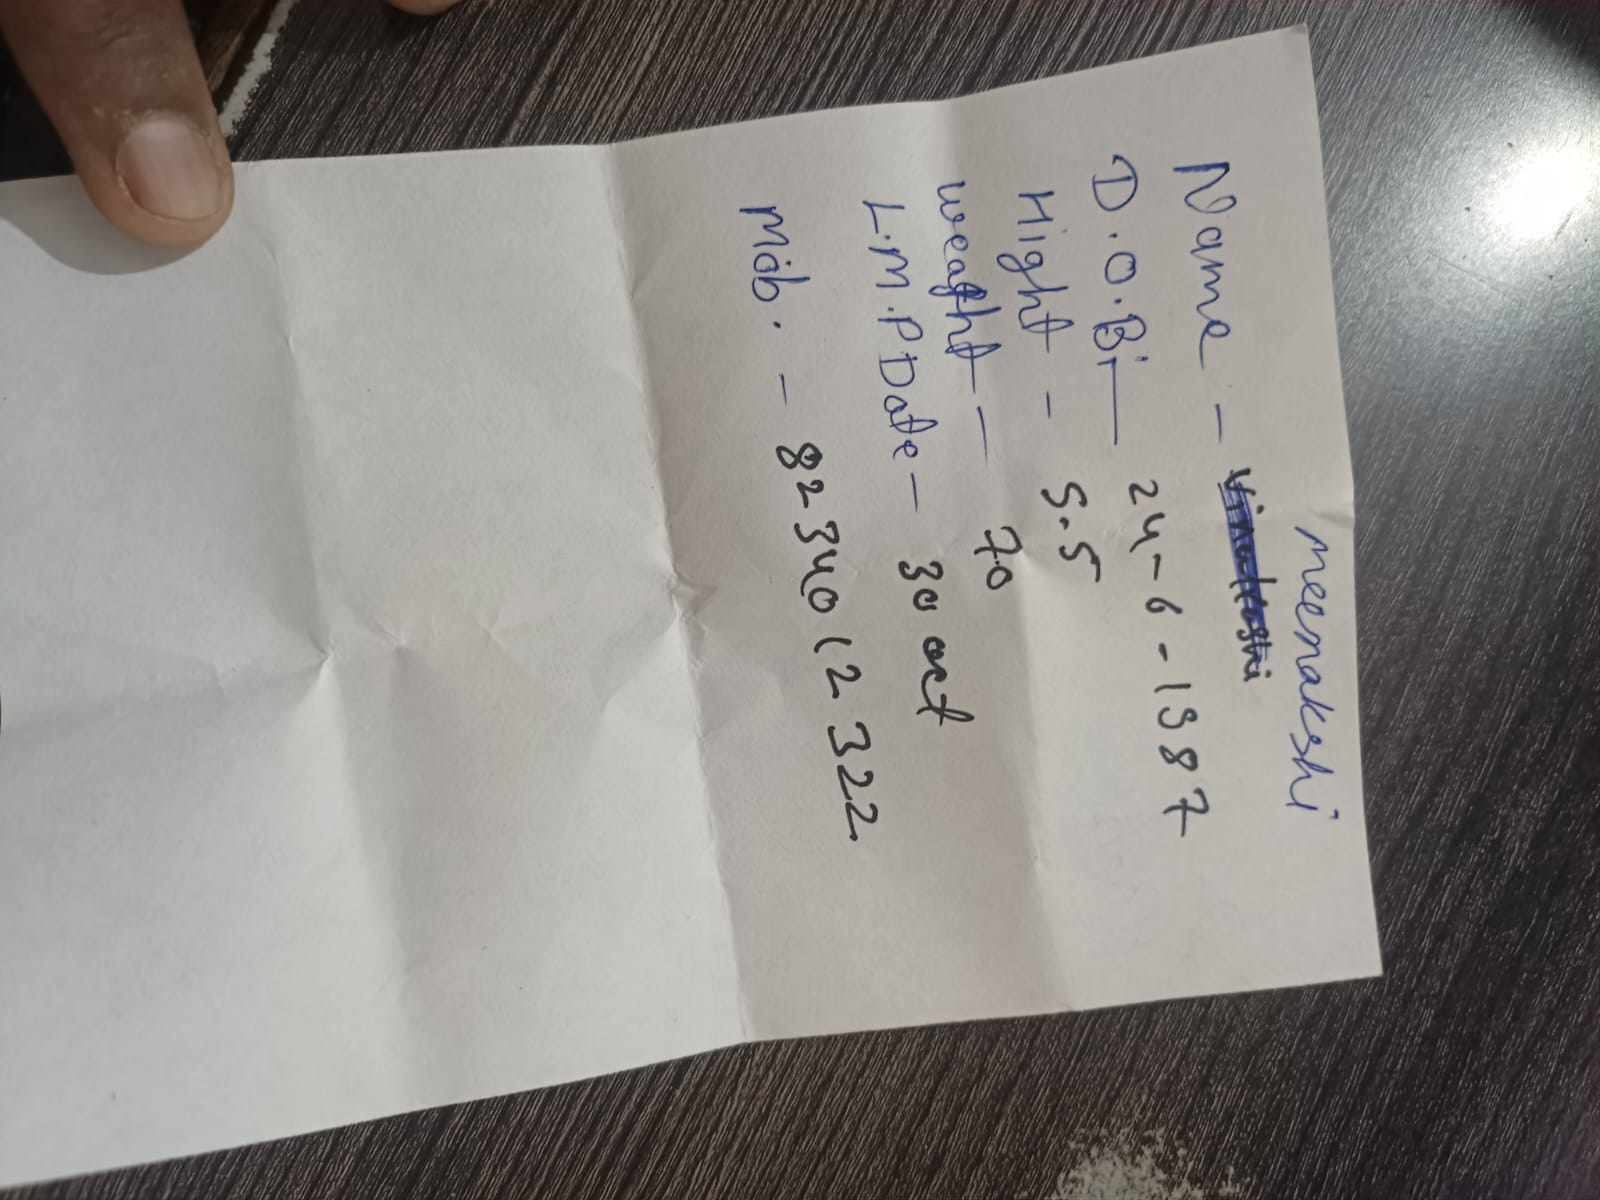 meenakshi
Name -
D.O.B; — 24-6-1987
Hight - 5.5
weaght — 70
L.M.P Date — 30 oct
Mob. - 8234012322